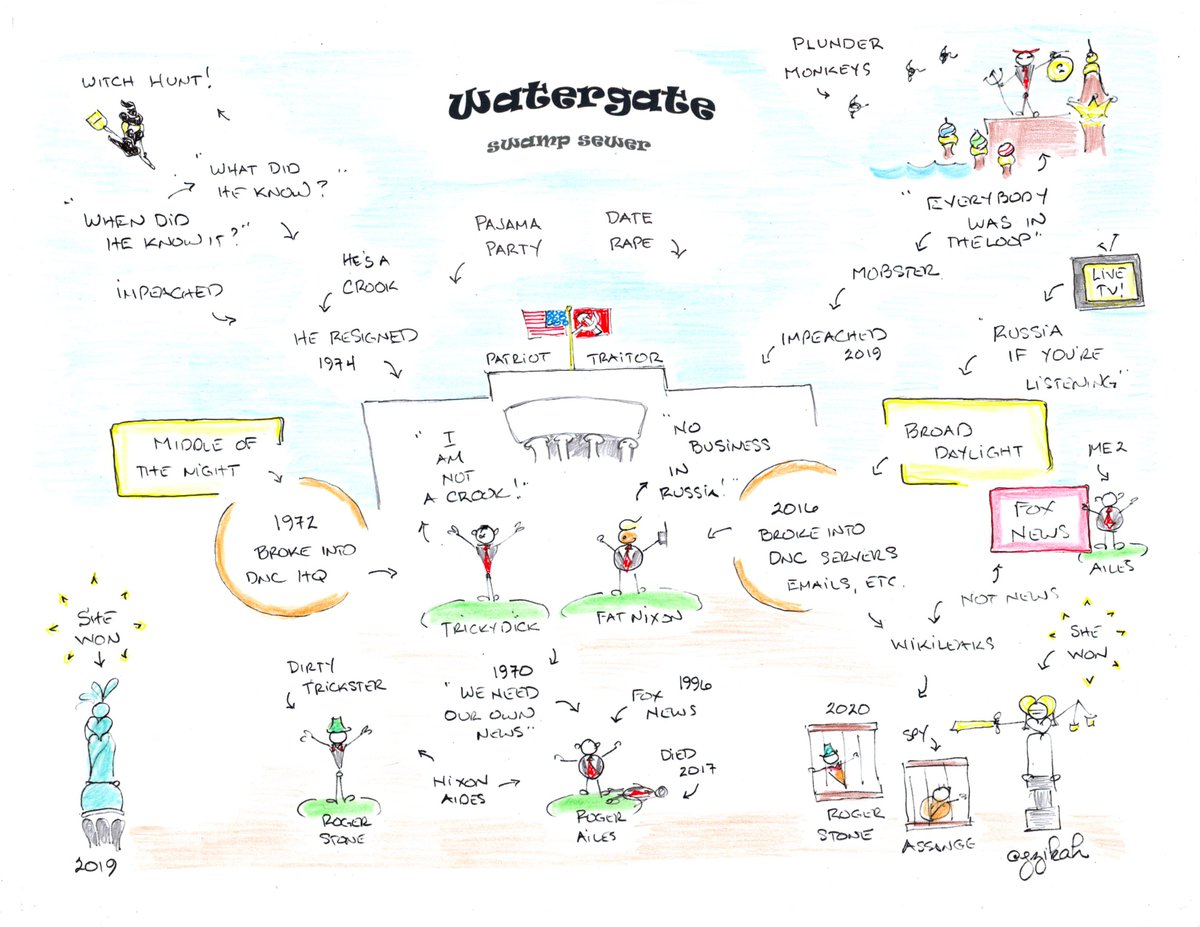 Watergate
swamp sewer
WITCH HUNT!
"WHAT DID
HE KNOW?"
"WHEN DID
HE KNOW IT?"
HE'S A
CROOK
IMPEACHED
HE RESIGNED
1974
PAJAMA
PARTY
DATE
RAPE
PATRIOT
TRAITOR
PLUNDER
MONKEYS
"EVERYBODY
WAS IN
THE LOOP"
MOBSTER
IMPEACHED
2019
LIVE
TV!
"RUSSIA
IF YOU'RE
LISTENING"
MIDDLE OF
THE NIGHT
1972
BROKE INTO
DNC HQ
"I
AM
NOT
A CROOK!"
TRICKY DICK
"NO
BUSINESS
IN
RUSSIA!"
FAT NIXON
BROAD
DAYLIGHT
2016
BROKE INTO
DNC SERVERS
EMAILS, ETC.
ME2
FOX
NEWS
AILES
NOT NEWS
WIKILEAKS
SHE
WON
2019
DIRTY
TRICKSTER
ROGER
STONE
1970
"WE NEED
OUR OWN
NEWS"
NIXON
AIDES
1996
FOX
NEWS
DIED
2017
ROGER
AILES
2020
ROGER
STONE
SPY
ASSANGE
SHE
WON
@gzikah